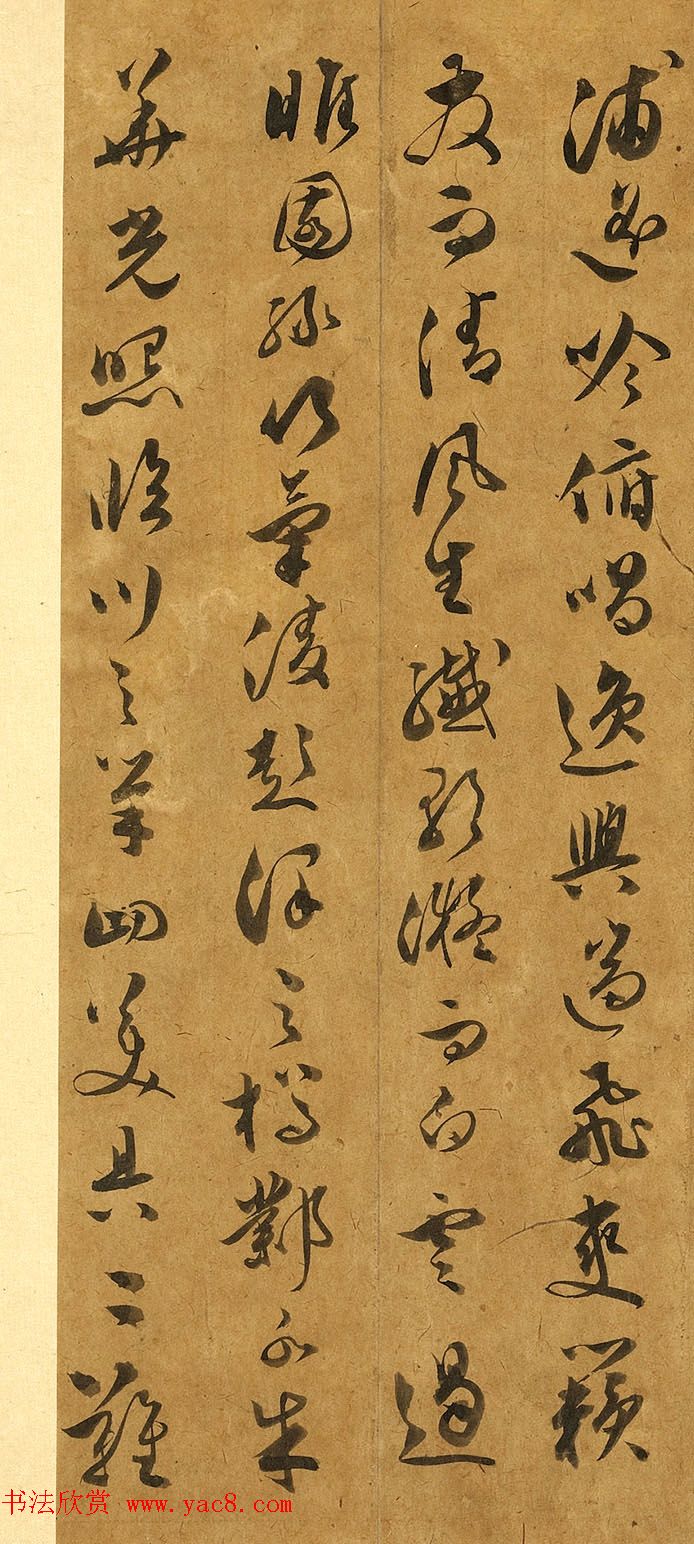 浦遥吟俯唱逸興遄飛爽籟
發而清風生纖歌凝而白雲遏
睢園緑竹氣淩彭澤之樽鄴水朱
華光照臨川之筆四美具二難
书法欣赏 www.yac8.com